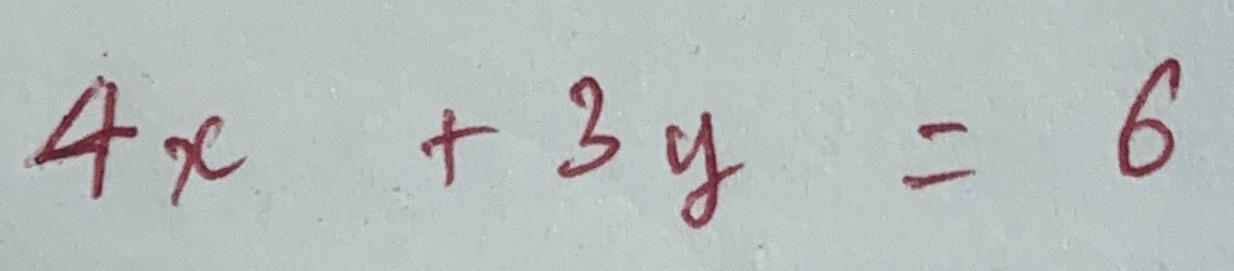 4x + 3y = 6